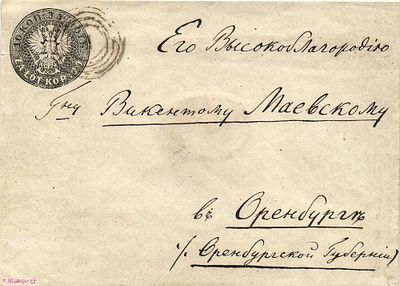 10 КОП. ЗА ЛОТЪ
ZA ŁÓT KOP. 10
Его Высокоблагородію
Гну Викентому Маевскому
въ Оренбургъ
/: Оренбургской Губерніи)